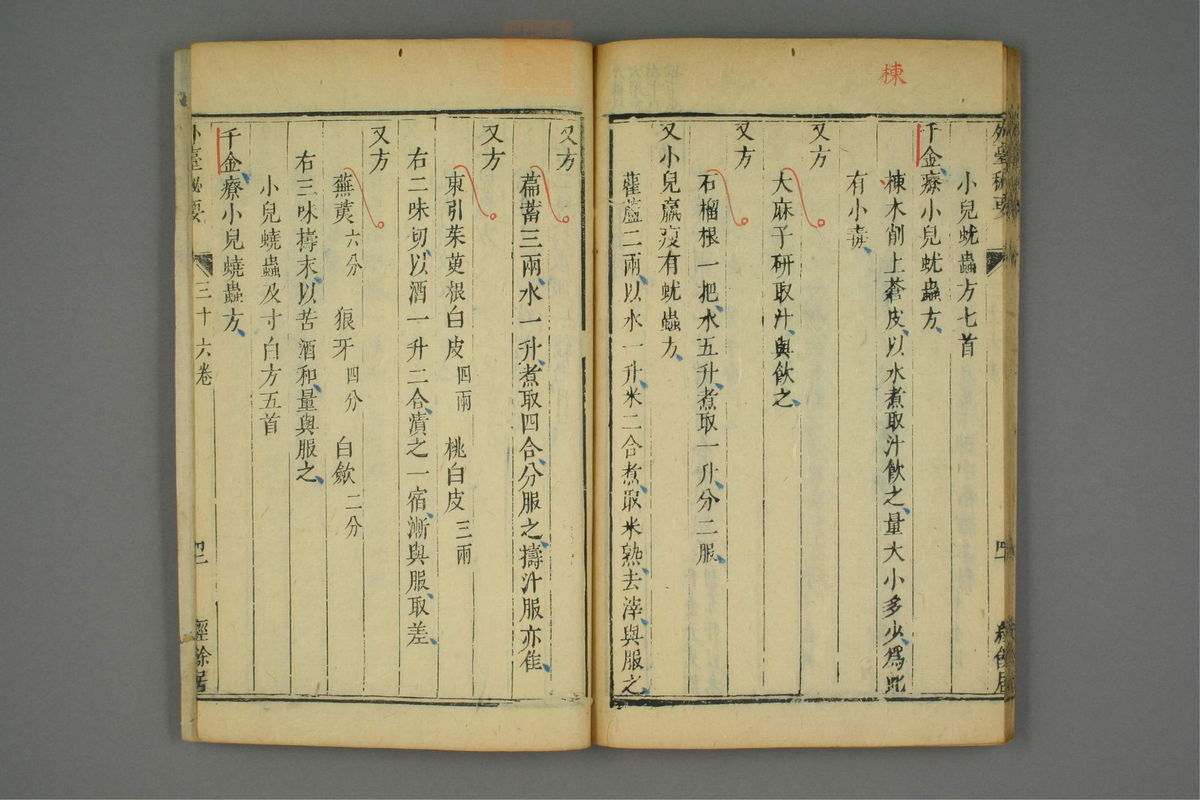 棟
外臺秘要
四十
經餘居
小兒蚘蟲方七首
千金療小兒蚘蟲方
棟木削上蒼皮以水煮取汁飲之量大小多少爲此
有小毒
又方
大麻子研取汁與飲之
又方
石榴根一把水五升煮取一升分二服
又小兒羸瘦有蚘蟲方
雚蘆二兩以水一升米二合煮取米熟去滓與服之
又方
萹蓄三兩水一升煮取四合分服之擣汁服亦佳
又方
東引茱萸根白皮四兩 桃白皮三兩
右二味切以酒一升二合漬之一宿漸與服取差
又方
蕪荑六分 狼牙四分 白歛二分
右三味擣末以苦酒和量與服之
小兒蟯蟲及寸白方五首
千金療小兒蟯蟲方
外臺秘要
三十六卷
經餘居